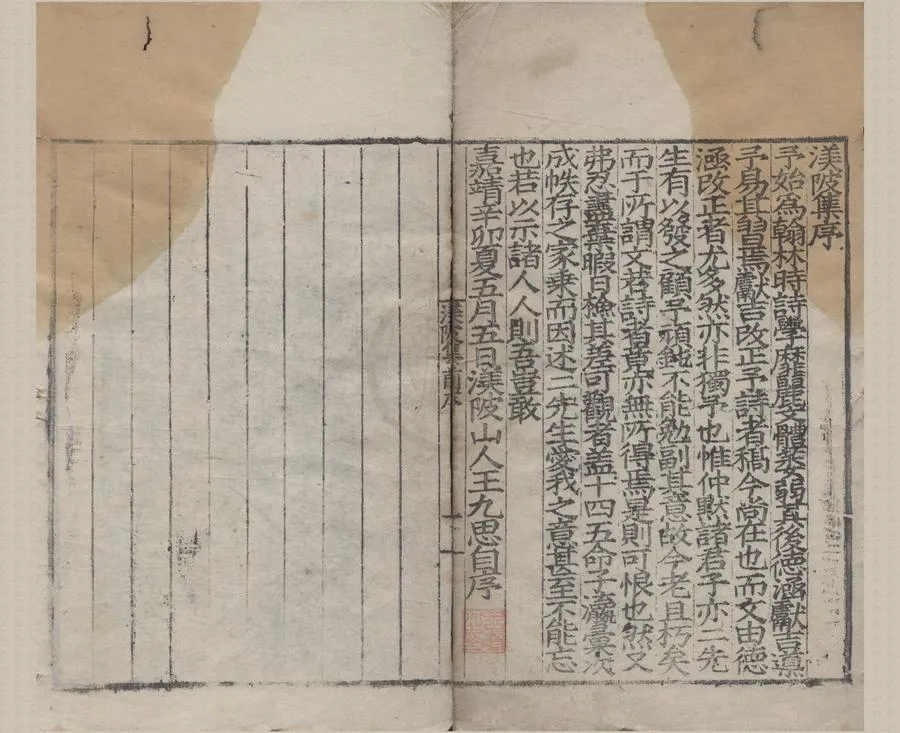 渼陂集序
予始為翰林時詩學靡麗文體萎弱其後德涵獻吉導
予易其習焉獻吉改正予詩者稿今尚在也而文由德
涵改正者尤多然亦非獨予也惟仲默諸君子亦二先
生有以發之顧予頑鈍不能勉副其意故今老且朽矣
而于所謂文若詩者竟亦無所得焉是則可恨也然又
弗忍盡棄暇日檢其差可觀者盖十四五命子瀛彙次
成帙存之家乘而因述二先生愛我之意甚至不能忘
也若以示諸人人則吾豈敢
嘉靖辛卯夏五月五日渼陂山人王九思自序
渼陂集前序
一